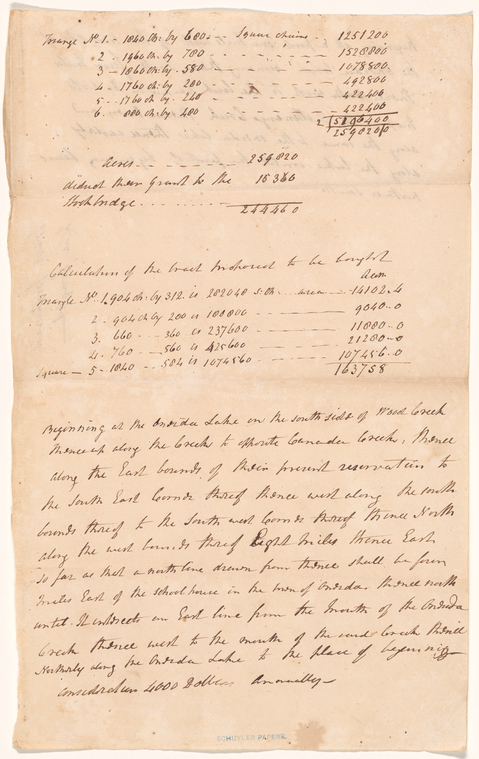 Triangle No. 1. - 1840 Ch: by 680 - - Square chains . . 1251200
2 - 1960 ch: by 780 - - - - - - - 1528800
3 - 1860 ch: by 580 - - - - - - - 1078800
4 - 1760 ch: by 280 - - - - - - - 492800
5 - 1760 ch: by 240 - - - - - - - 422400
6. 880 ch: by 480 - - - - - - - 422400
2 5196400
2598200
Acres - - - - - - - 259820
deduct their Grant to the 15360
Stockbridge . . . . . . . 244460
Calculation of the tract proposed to be bought
Acres
Triangle No. 1. 904 ch: by 312 is 282048 S: Ch . . . area - 14102..4
2. 904 ch by 200 is 180800 - - - - 9040..0
3. 660 - - 360 is 237600 - - - - 11880..0
4. 760 - - 560 is 425600 - - - - 21280..0
Square - 5 - 1840 - - 584 is 1074560 - - - - 107456..0
163758
Beginning at the Oneida Lake on the south side of Wood Creek
thence up along the Creek to opposite Canada Creek, thence
along the East bounds of their present reservation to
the South East Corner thereof thence west along the south
bounds thereof to the South west Corner thereof thence North
along the west bounds thereof Eight miles thence East
so far as that a north line drawn from thence shall be four
miles East of the school house in the town of Oneida thence north
until it intersects an East line from the mouth of the Oneida
Creek thence west to the mouth of the said Creek thence
Northerly along the Oneida Lake to the place of beginning
Consideration 4000 Dollars Annually
SCHUYLER PAPERS.